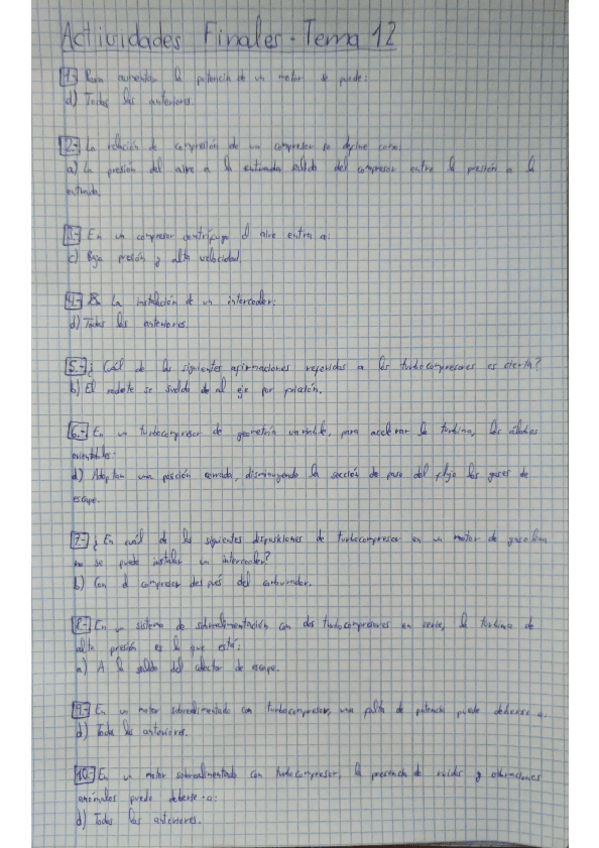 Actividades Finales - Tema 12
1- Para aumentar la potencia de un motor se puede:
d) Todas las anteriores.
2.- La relación de compresión de un compresor se define como:
a) La presión del aire a la salida del compresor entre la presión a la
entrada.
3- En un compresor centrífugo el aire entra a:
c) Baja presión y alta velocidad.
4.- La instalación de un intercooler:
d) Todas las anteriores.
5.- ¿Cuál de las siguientes afirmaciones referidas a los turbocompresores es cierta?
b) El rodete se suelda al eje por fricción.
6.- En un turbocompresor de geometría variable, para acelerar la turbina, los álabes
orientables:
d) Adoptan una posición cerrada, disminuyendo la sección de paso del flujo los gases de
escape.
7- ¿En cuál de las siguientes disposiciones de turbocompresor en un motor de gasolina
no se puede instalar un intercooler?
b) Con el compresor después del carburador.
8.- En un sistema de sobrealimentación con dos turbocompresores en serie, la turbina de
alta presión es la que está:
a) A la salida del colector de escape.
9.- En un motor sobrealimentado con turbocompresor, una falta de potencia puede deberse a:
d) Todas las anteriores.
10.- En un motor sobrealimentado con turbocompresor, la presencia de ruidos y vibraciones
anómalos puede deberse a:
d) Todas las anteriores.